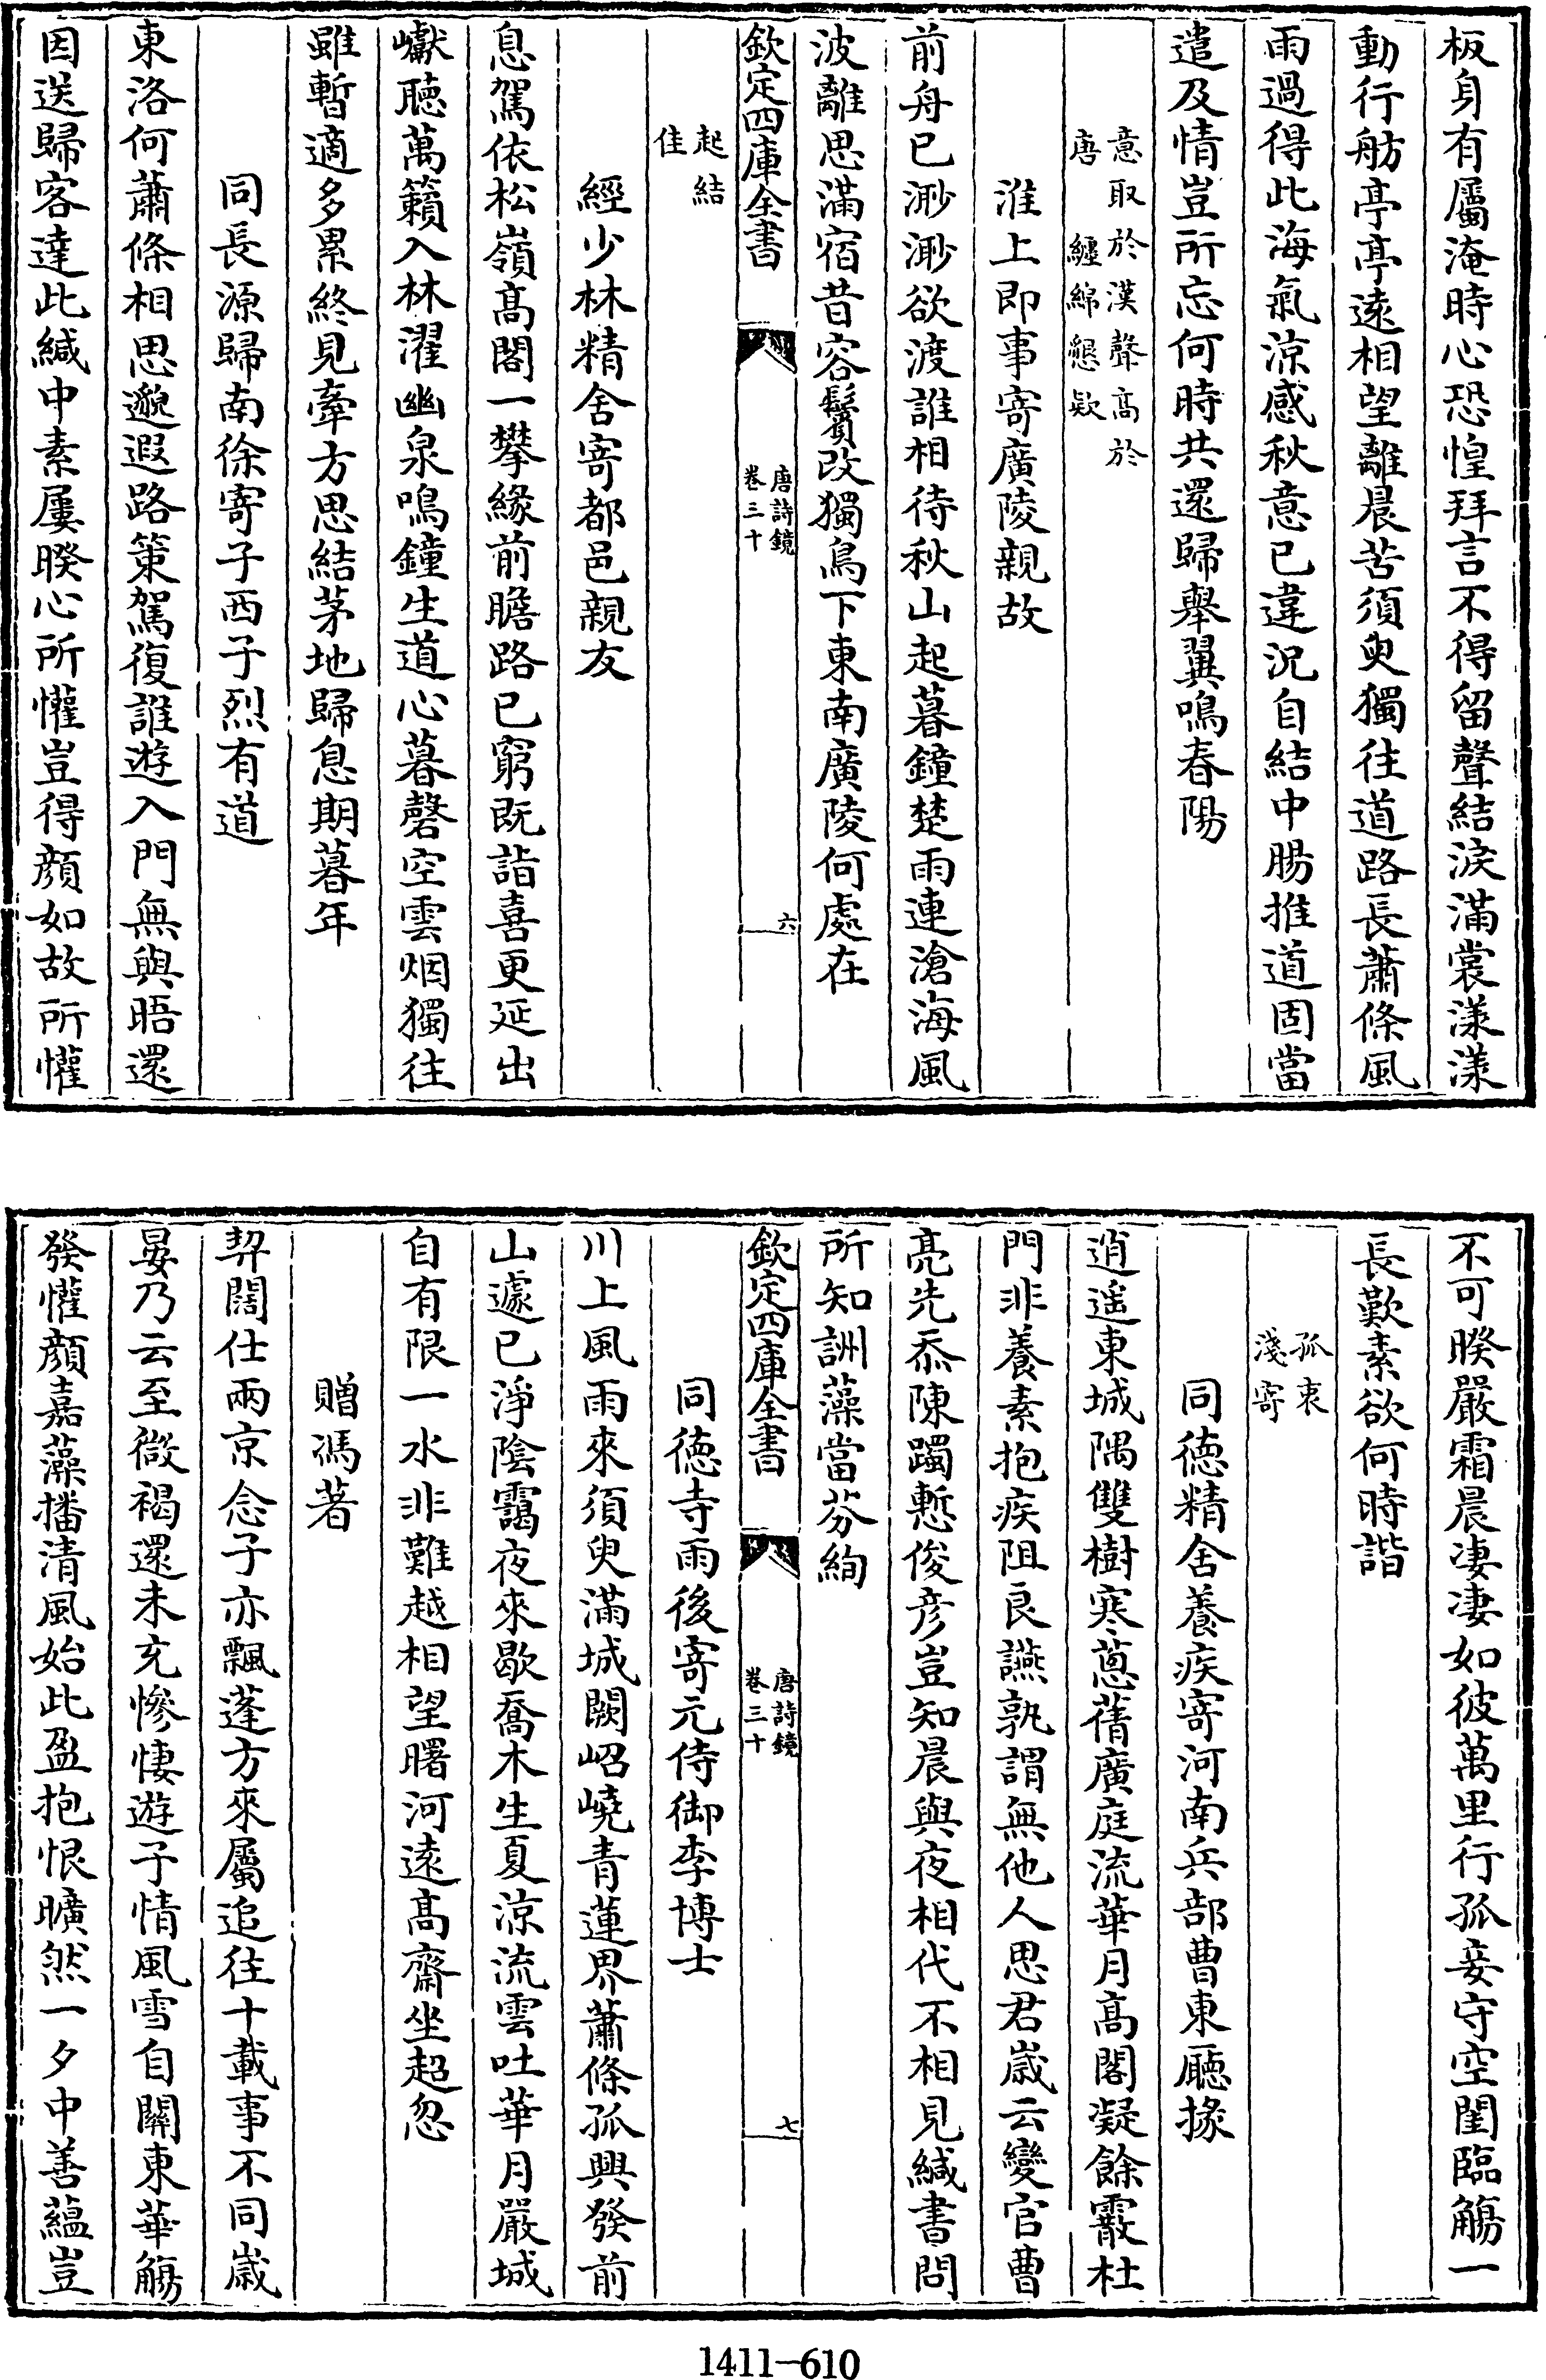 板身有屬淹時心恐惶拜言不得留聲結淚滿裳漾漾
動行舫亭亭遠相望離晨苦須臾獨往道路長蕭條風
雨過得此海氣涼感秋意已違況自結中腸推道固當
遣及情豈所忘何時共還歸舉翼鳴春陽
意取於漢聲高於
唐　纏綿懇欵
淮上即事寄廣陵親故
前舟已渺渺欲渡誰相待秋山起暮鐘楚雨連滄海風
波離思滿宿昔容鬢改獨鳥下東南廣陵何處在
欽定四庫全書
唐詩鏡
卷三十
六
起結
佳
經少林精舍寄都邑親友
息駕依松嶺高閣一攀緣前瞻路已窮既詣喜更延出
巘聽萬籟入林濯幽泉鳴鐘生道心暮磬空雲烟獨往
雖暫適多累終見牽方思結茅地歸息期暮年
同長源歸南徐寄子西子烈有道
東洛何蕭條相思邈遐路策駕復誰遊入門無與晤還
因送歸客達此緘中素屢暌心所懽豈得顏如故所懽
不可暌嚴霜晨凄凄如彼萬里行孤妾守空閨臨觴一
長歎素欲何時諧
孤衷
淺寄
同德精舍養疾寄河南兵部曹東廳掾
逍遙東城隅雙樹寒蔥蒨廣庭流華月高閣凝餘霰杜
門非養素抱疾阻良讌孰謂無他人思君歲云變官曹
亮先忝陳躅慙俊彦豈知晨與夜相代不相見緘書問
所知詶藻當芬絢
欽定四庫全書
唐詩鏡
卷三十
七
同德寺雨後寄元侍御李博士
川上風雨來須臾滿城闕岧嶢青蓮界蕭條孤興發前
山遽已淨陰靄夜來歇喬木生夏涼流雲吐華月嚴城
自有限一水非難越相望曙河遠高齋坐超忽
贈馮著
契闊仕兩京念子亦飄蓬方來屬追往十載事不同歲
晏乃云至微褐還未充慘悽遊子情風雪自關東華觴
發懽顏嘉藻播清風始此盈抱恨曠然一夕中善蘊豈
1411—610